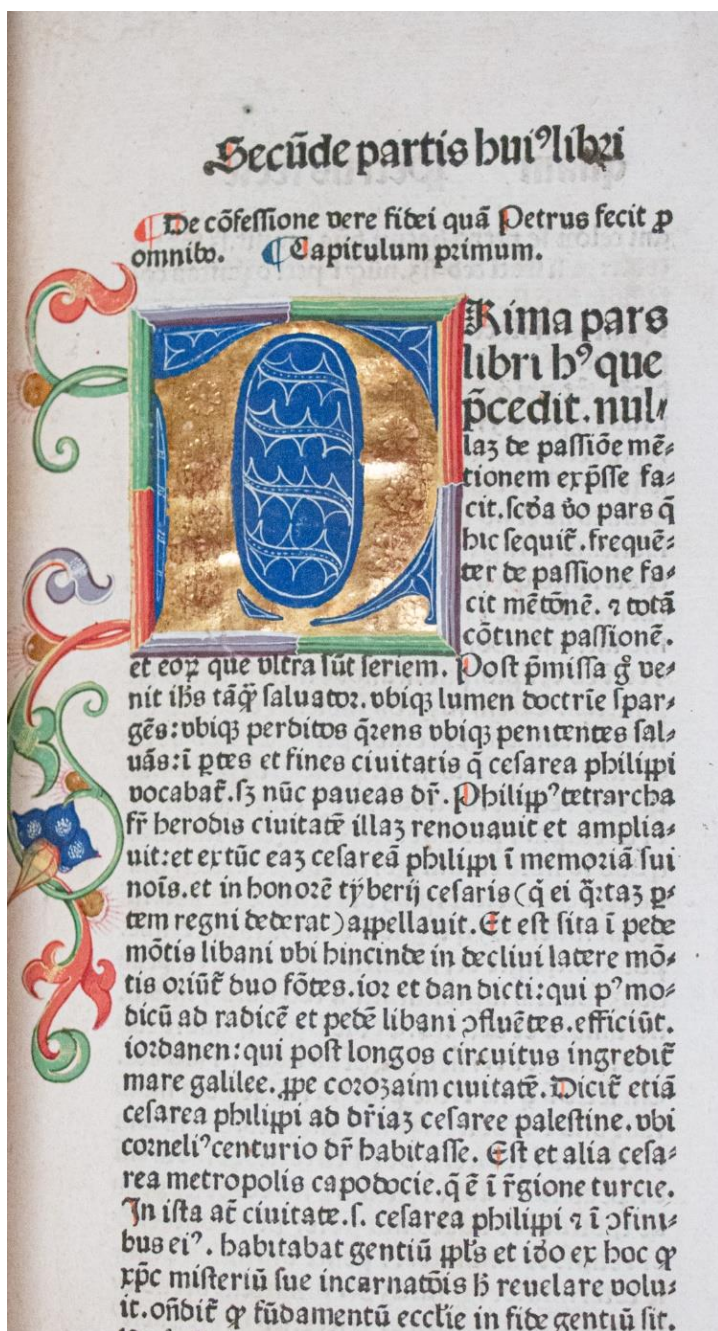 Secūde partis huiꝰ libri
De cōfessione vere fidei quā Petrus fecit ꝓ
omnibꝰ. Capitulum primum.
PRima pars
libri hꝰ que
p̄cedit. nul⸗
laꝫ de passiōe mē⸗
tionem exp̄sse fa⸗
cit. scd̄a v̄o pars q̄
hic sequit̄. frequē⸗
ter de passione fa⸗
cit mētōnē. ⁊ totā
cōtinet passionē.
et eoꝝ que vltra sūt seriem. Post p̄missa gͦ ve⸗
nit ihs̄ tāqꝫ saluator. vbiqꝫ lumen doctrīe spar⸗
gēs: vbiqꝫ perditos q̄rens vbiqꝫ penitentes sal⸗
uās: ī ꝑtes et fines ciuitatis q̄ cesarea philippi
vocabat̄. sꝫ nūc paueas dr̄. Philippꝰ tetrarcha
fr̄ herodis ciuitatē illaꝫ renouauit et amplia⸗
uit: et extūc eaꝫ cesareā philippi ī memoriā sui
noīs. et in honorē tyberij cesaris (q̄ ei q̄rtaꝫ ꝑ⸗
tem regni dederat) appellauit. Et est sita ī pede
mōtis libani vbi hincinde in decliui latere mō⸗
tis oriūt̄ duo fōtes. ior et dan dicti: qui pꝰ mo⸗
dicū ad radicē et pedē libani ꝯfluētes. efficiūt.
iordanen: qui post longos circuitus ingredit̄
mare galilee. ꝓpe corozaim ciuitatē. Dicit̄ etiā
cesarea philippi ad dr̄iaꝫ cesaree palestine. vbi
corneliꝰ centurio dr̄ habitasse. Est et alia cesa⸗
rea metropolis capodocie. q̄ ē ī r̄gione turcie.
In ista at̄ ciuitate. s. cesarea philippi ⁊ ī ꝯfini⸗
bus eiꝰ. habitabat gentiū ppl̄s et iō ex hoc ꝙ
xp̄c misteriū sue incarnatōis h̄ reuelare volu⸗
it. oñdit̄ ꝙ fūdamentū eccl̄ie in fide gentiū sit.